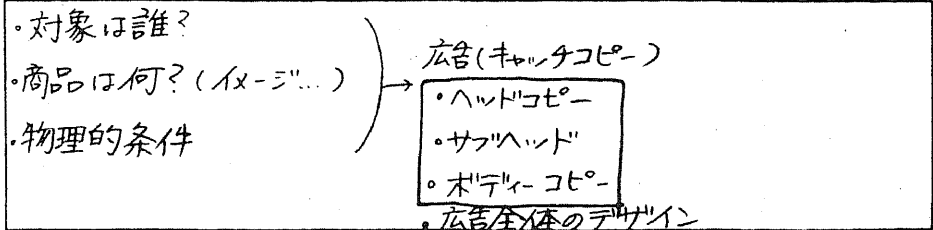 ・対象は誰?
・商品は何?(イメージ...)
・物理的条件
→
広告(キャッチコピー)
・ヘッドコピー
・サブヘッド
・ボディーコピー
・広告全体のデザイン